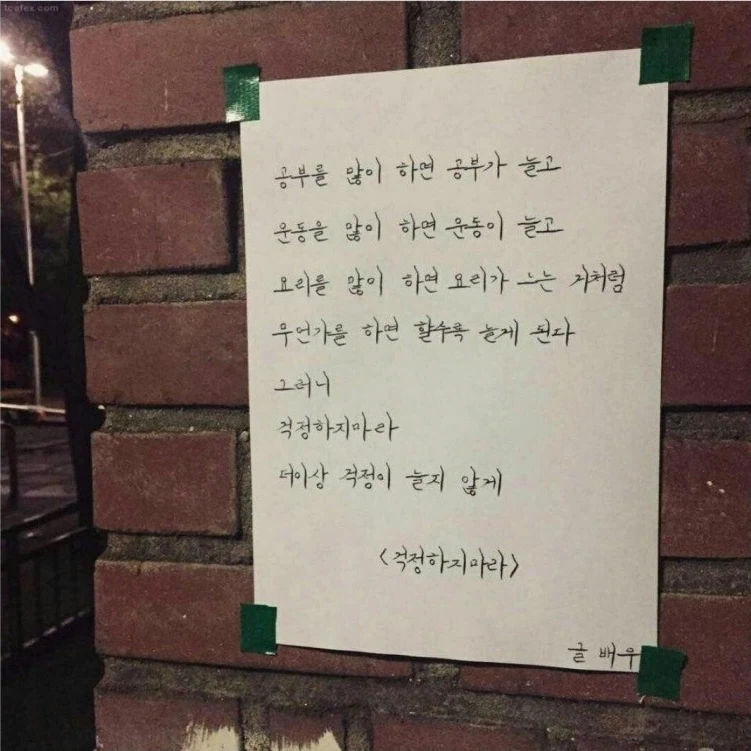 1cafex.com
공부를 많이 하면 공부가 늘고
운동을 많이 하면 운동이 늘고
요리를 많이 하면 요리가 느는 거처럼
무언가를 하면 할수록 늘게 된다
그러니
걱정하지마라
더이상 걱정이 늘지 않게
<걱정하지마라>
글 배우